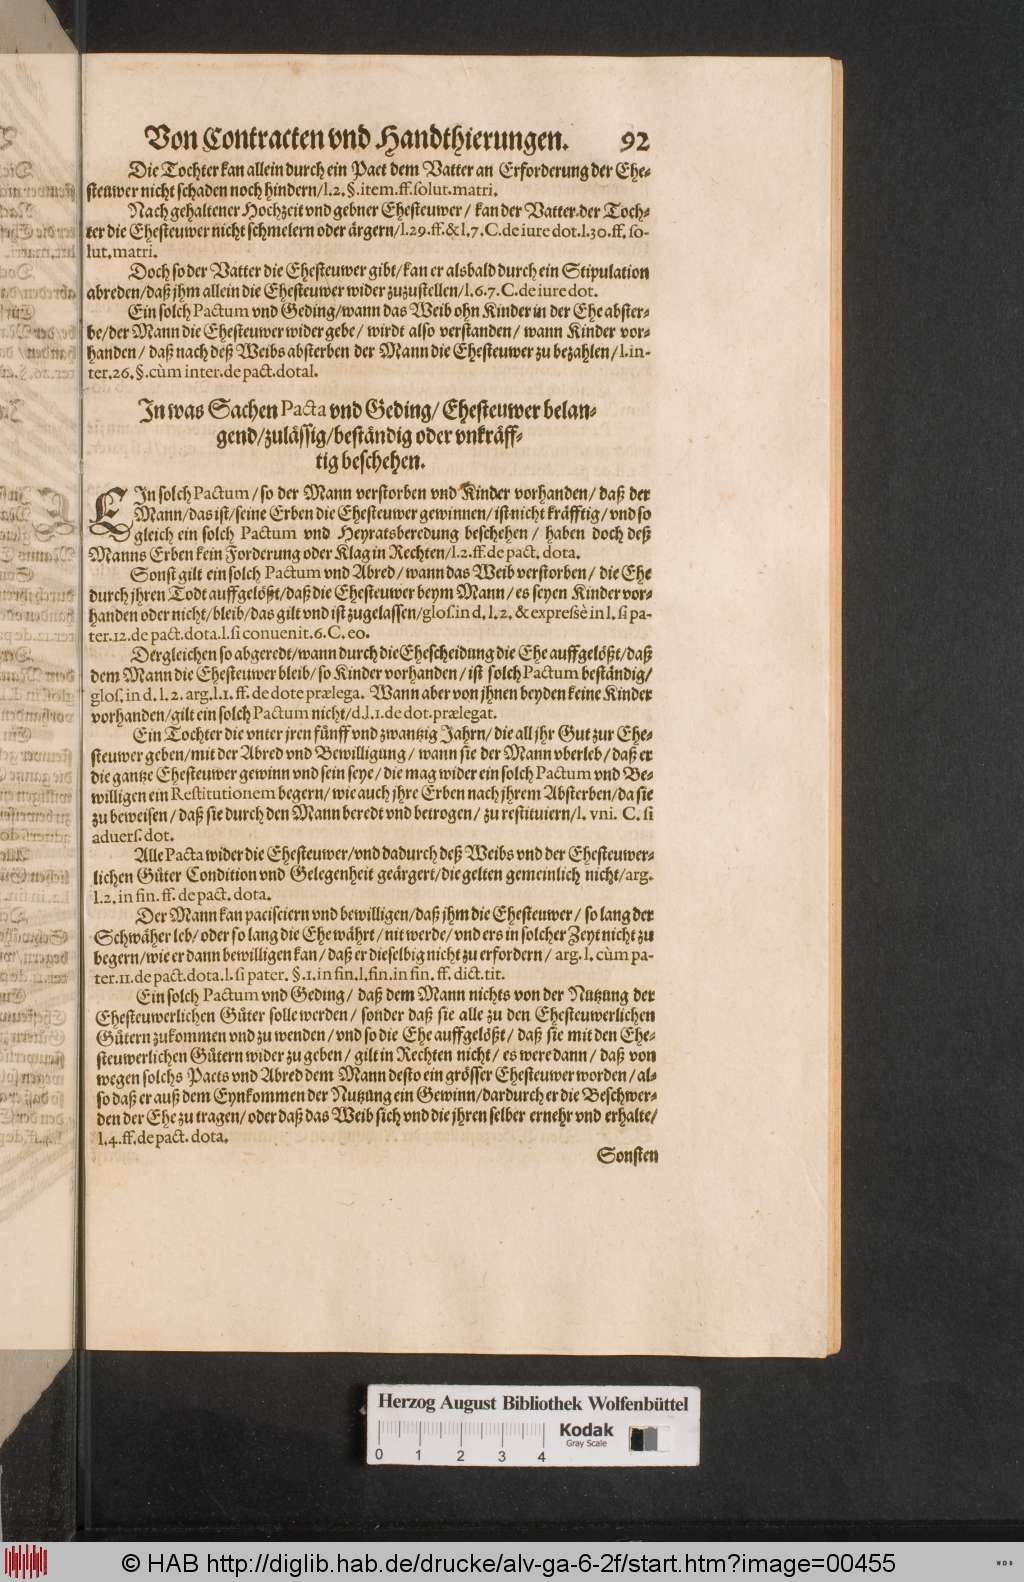 Von Contracten vnd Handthierungen. 92
Die Tochter kan allein durch ein Pact dem Vatter an Erforderung der Ehe-
steuwer nicht schaden noch hindern/l.2.§.item.ff.solut.matri.
Nach gehaltener Hochzeit vnd gebner Ehesteuwer / kan der Vatter der Toch-
ter die Ehesteuwer nicht schmelern oder ärgern/l.29.ff.&l.7.C.de iure dot.l.30.ff. so-
lut.matri.
Doch so der Vatter die Ehesteuwer gibt/kan er alsbald durch ein Stipulation
abreden/daß jhm allein die Ehesteuwer wider zuzustellen/l.6.7.C.de iure dot.
Ein solch Pactum vnd Geding/wann das Weib ohn Kinder in der Ehe abster-
be/der Mann die Ehesteuwer wider gebe/ wirdt also verstanden/ wann Kinder vor-
handen / daß nach deß Weibs absterben der Mann die Ehesteuwer zu bezahlen/l.in-
ter.26.§.cùm inter.de pact.dotal.
In was Sachen Pacta vnd Geding/ Ehesteuwer belan-
gend/zulässig/beständig oder vnkräff-
tig beschehen.
EIn solch Pactum/so der Mann verstorben vnd Kinder vorhanden/ daß der
Mann/das ist/seine Erben die Ehesteuwer gewinnen/ist nicht kräfftig/vnd so
gleich ein solch Pactum vnd Heyratsberedung beschehen / haben doch deß
Manns Erben kein Forderung oder Klag in Rechten/l.2.ff.de pact. dota.
Sonst gilt ein solch Pactum vnd Abred/wann das Weib verstorben/ die Ehe
durch jhren Todt auffgelößt/daß die Ehesteuwer beym Mann/es seyen Kinder vor-
handen oder nicht/bleib/das gilt vnd ist zugelassen/glos.in d.l.2. & expreßè in l. si pa-
ter.12.de pact.dota.l.si conuenit.6.C.eo.
Dergleichen so abgeredt/wann durch die Ehescheidung die Ehe auffgelößt/daß
dem Mann die Ehesteuwer bleib/so Kinder vorhanden/ ist solch Pactum beständig/
glos. in d. l. 2. arg.l.1. ff. de dote prælega. Wann aber von jhnen beyden keine Kinder
vorhanden/gilt ein solch Pactum nicht/d.l.1.de dot.prælegat.
Ein Tochter die vnter jren fünff vnd zwantzig Jahrn/die all jhr Gut zur Ehe-
steuwer geben/mit der Abred vnd Bewilligung/ wann sie der Mann vberleb/daß er
die gantze Ehesteuwer gewinn vnd sein seye/die mag wider ein solch Pactum vnd Be-
willigen ein Restitutionem begern/wie auch jhre Erben nach jhrem Absterben/da sie
zu beweisen/ daß sie durch den Mann beredt vnd betrogen/ zu restituiern/l. vni. C. si
aduers. dot.
Alle Pacta wider die Ehesteuwer/vnd dadurch deß Weibs vnd der Ehesteuwer-
lichen Güter Condition vnd Gelegenheit geärgert/die gelten gemeinlich nicht/arg.
l.2. in fin. ff. de pact. dota.
Der Mann kan pacisciern vnd bewilligen/daß jhm die Ehesteuwer/ so lang der
Schwäher leb/oder so lang die Ehe währt/nit werde/vnd ers in solcher Zeyt nicht zu
begern/wie er dann bewilligen kan/daß er dieselbig nicht zu erfordern/ arg. l. cùm pa-
ter.11.de pact.dota.l.si pater. §.1.in fin.l.fin.in fin. ff. dict.tit.
Ein solch Pactum vnd Geding/ daß dem Mann nichts von der Nutzung der
Ehesteuwerlichen Güter solle werden/ sonder daß sie alle zu den Ehesteuwerlichen
Gütern zukommen vnd zu wenden/vnd so die Ehe auffgelößt/ daß sie mit den Ehe-
steuwerlichen Gütern wider zu geben/ gilt in Rechten nicht/ es were dann/ daß von
wegen solchs Pacts vnd Abred dem Mann desto ein grösser Ehesteuwer worden/al-
so daß er auß dem Eynkommen der Nutzung ein Gewinn/dardurch er die Beschwer-
den der Ehe zu tragen/oder daß das Weib sich vnd die jhren selber ernehr vnd erhalte/
l.4.ff.de pact. dota.
Sonsten
Herzog August Bibliothek Wolfenbüttel
0 1 2 3 4
Kodak
Gray Scale
© HAB http://diglib.hab.de/drucke/alv-ga-6-2f/start.htm?image=00455
WDB